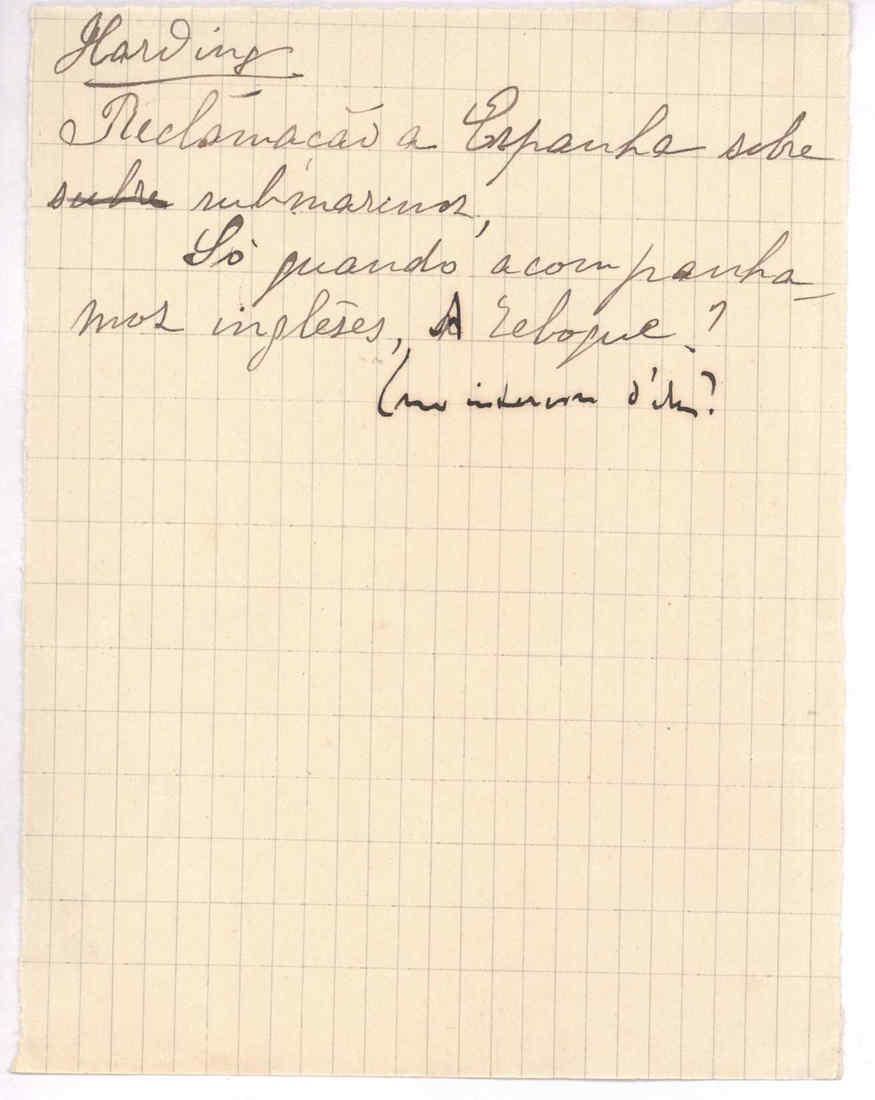 Harding
Reclamação a Espanha sobre
sobre submarinos,
Só quando acompanha-
mos inglêses, A reboque?
(